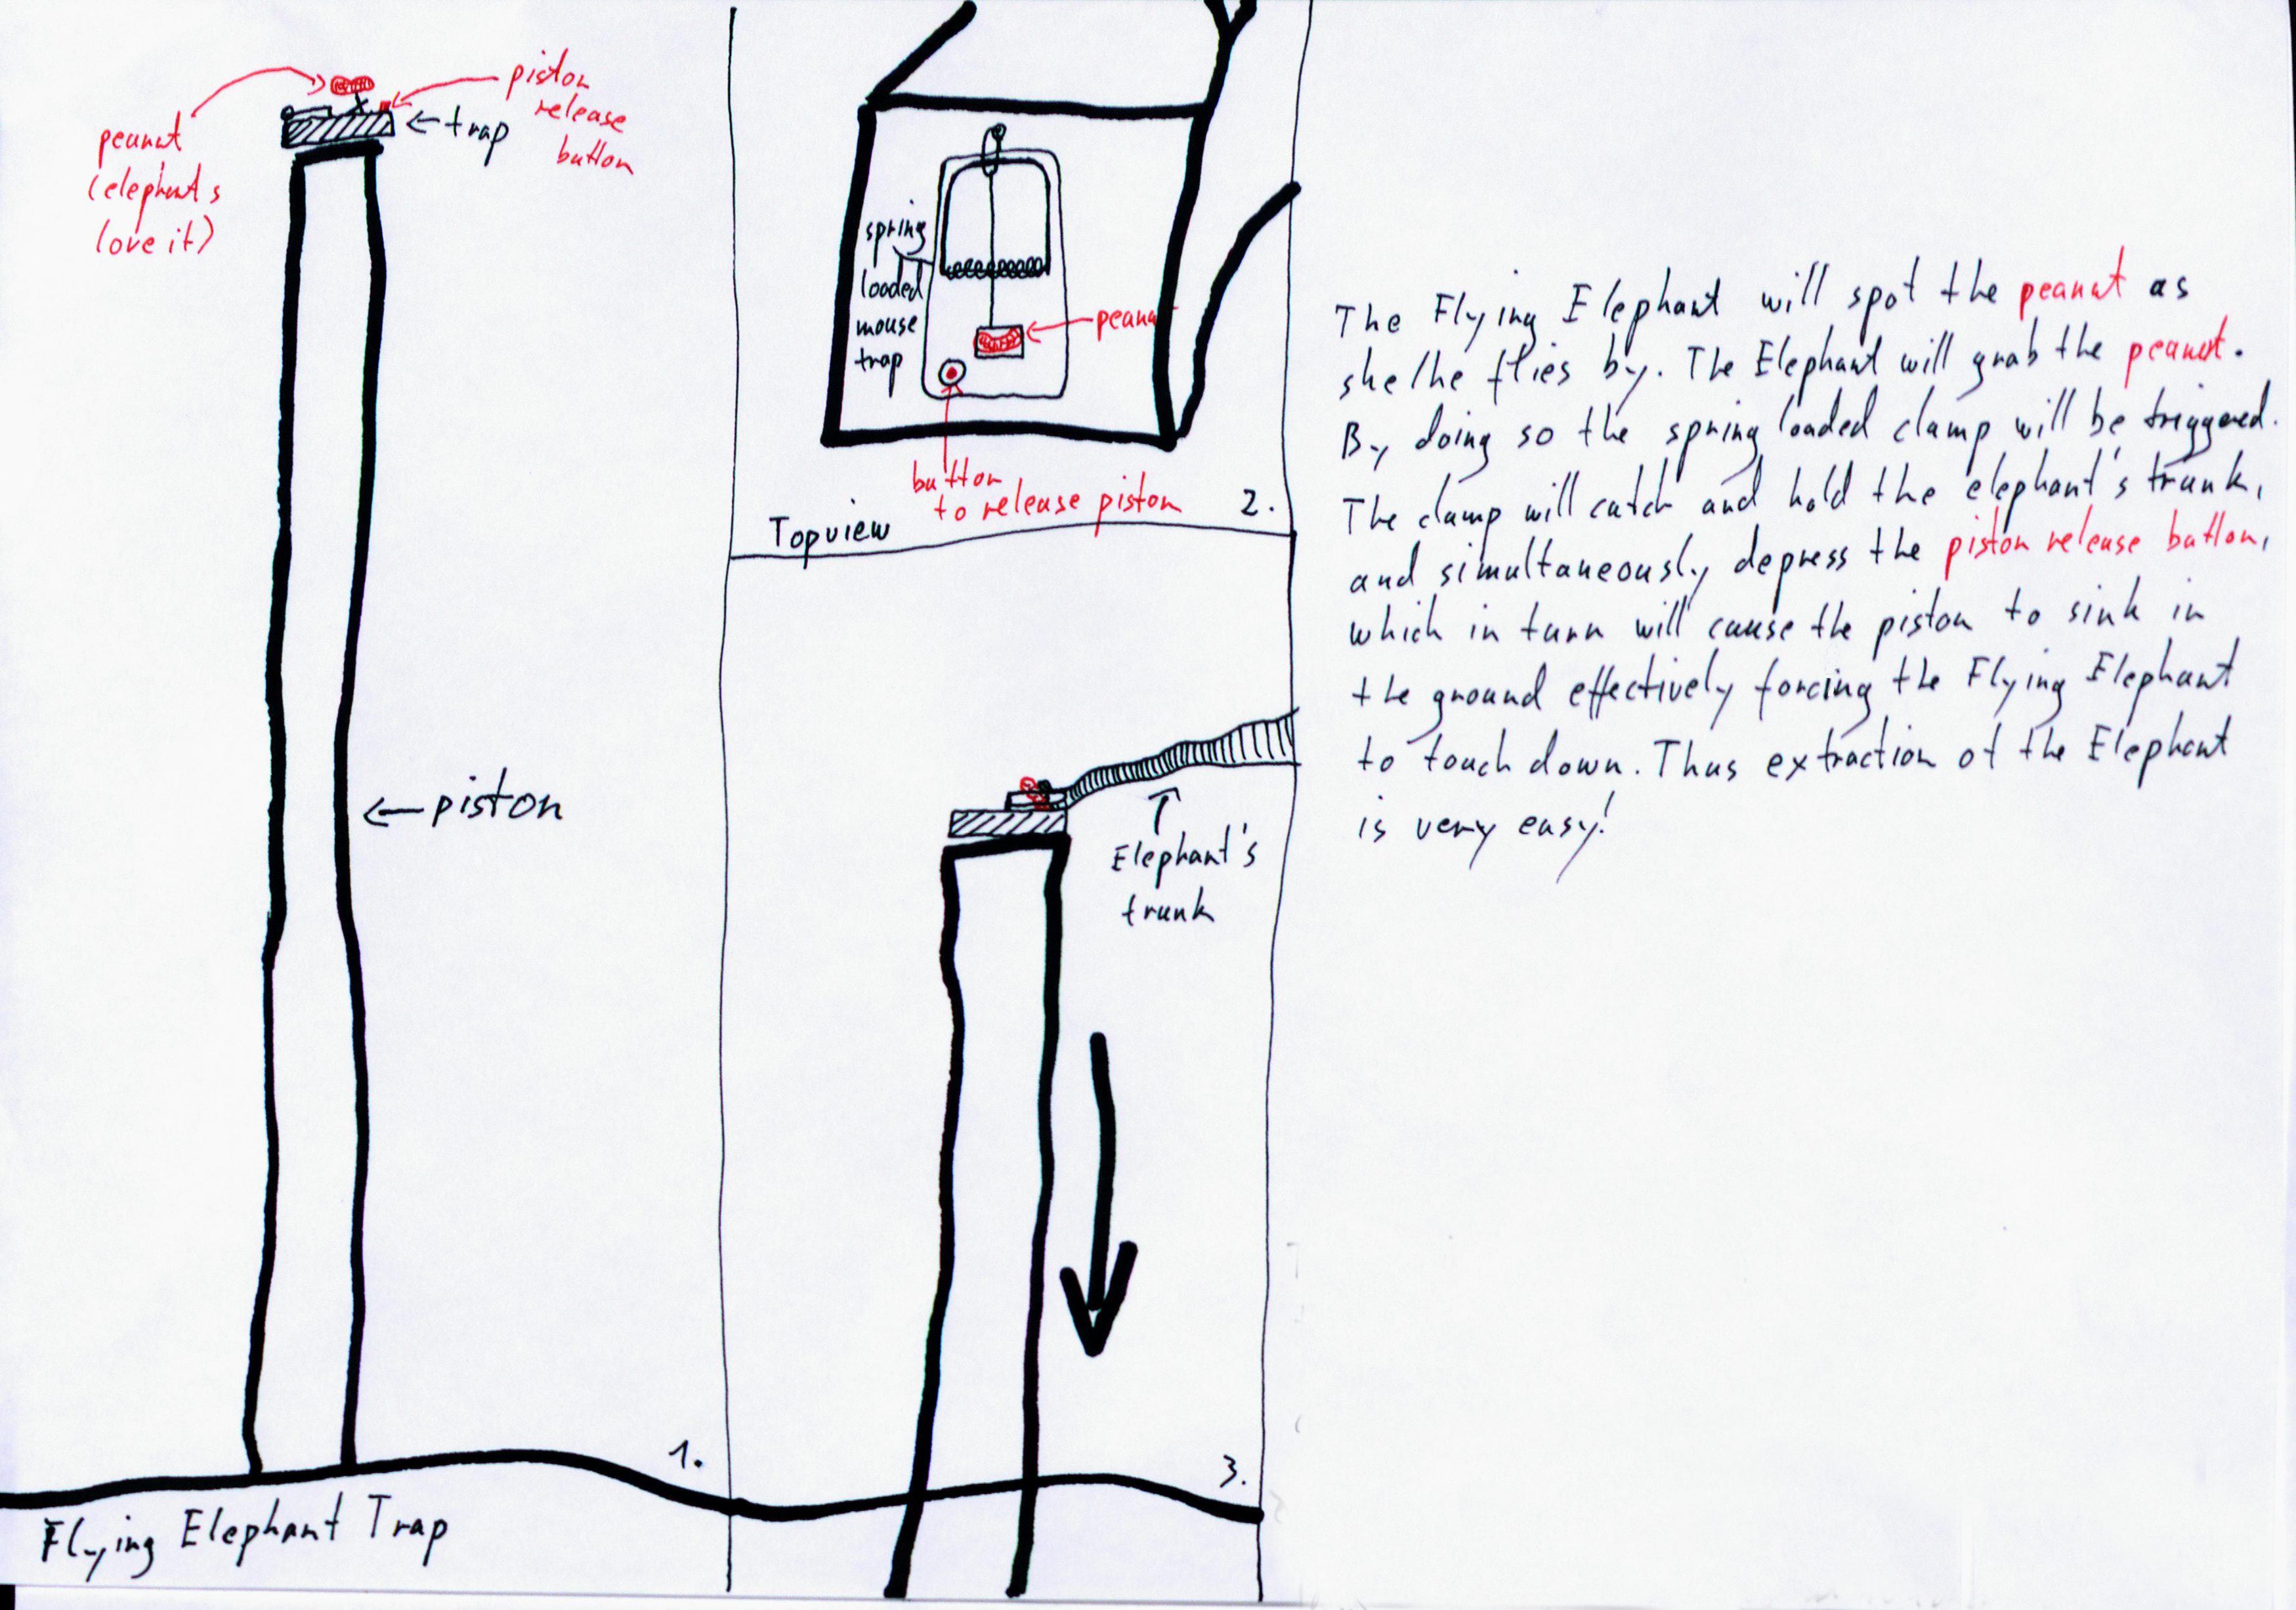 peanut
(elephants
love it)
piston
release
button
trap
piston
1.
Flying Elephant Trap
spring
loaded
mouse
trap
peanut
button
to release piston
2.
Topview
Elephant's
trunk
3.
The Flying Elephant will spot the peanut as
she/he flies by. The Elephant will grab the peanut.
By doing so the spring loaded clamp will be triggered.
The clamp will catch and hold the elephant's trunk,
and simultaneously depress the piston release button,
which in turn will cause the piston to sink in
the ground effectively forcing the Flying Elephant
to touch down. Thus extraction of the Elephant
is very easy!